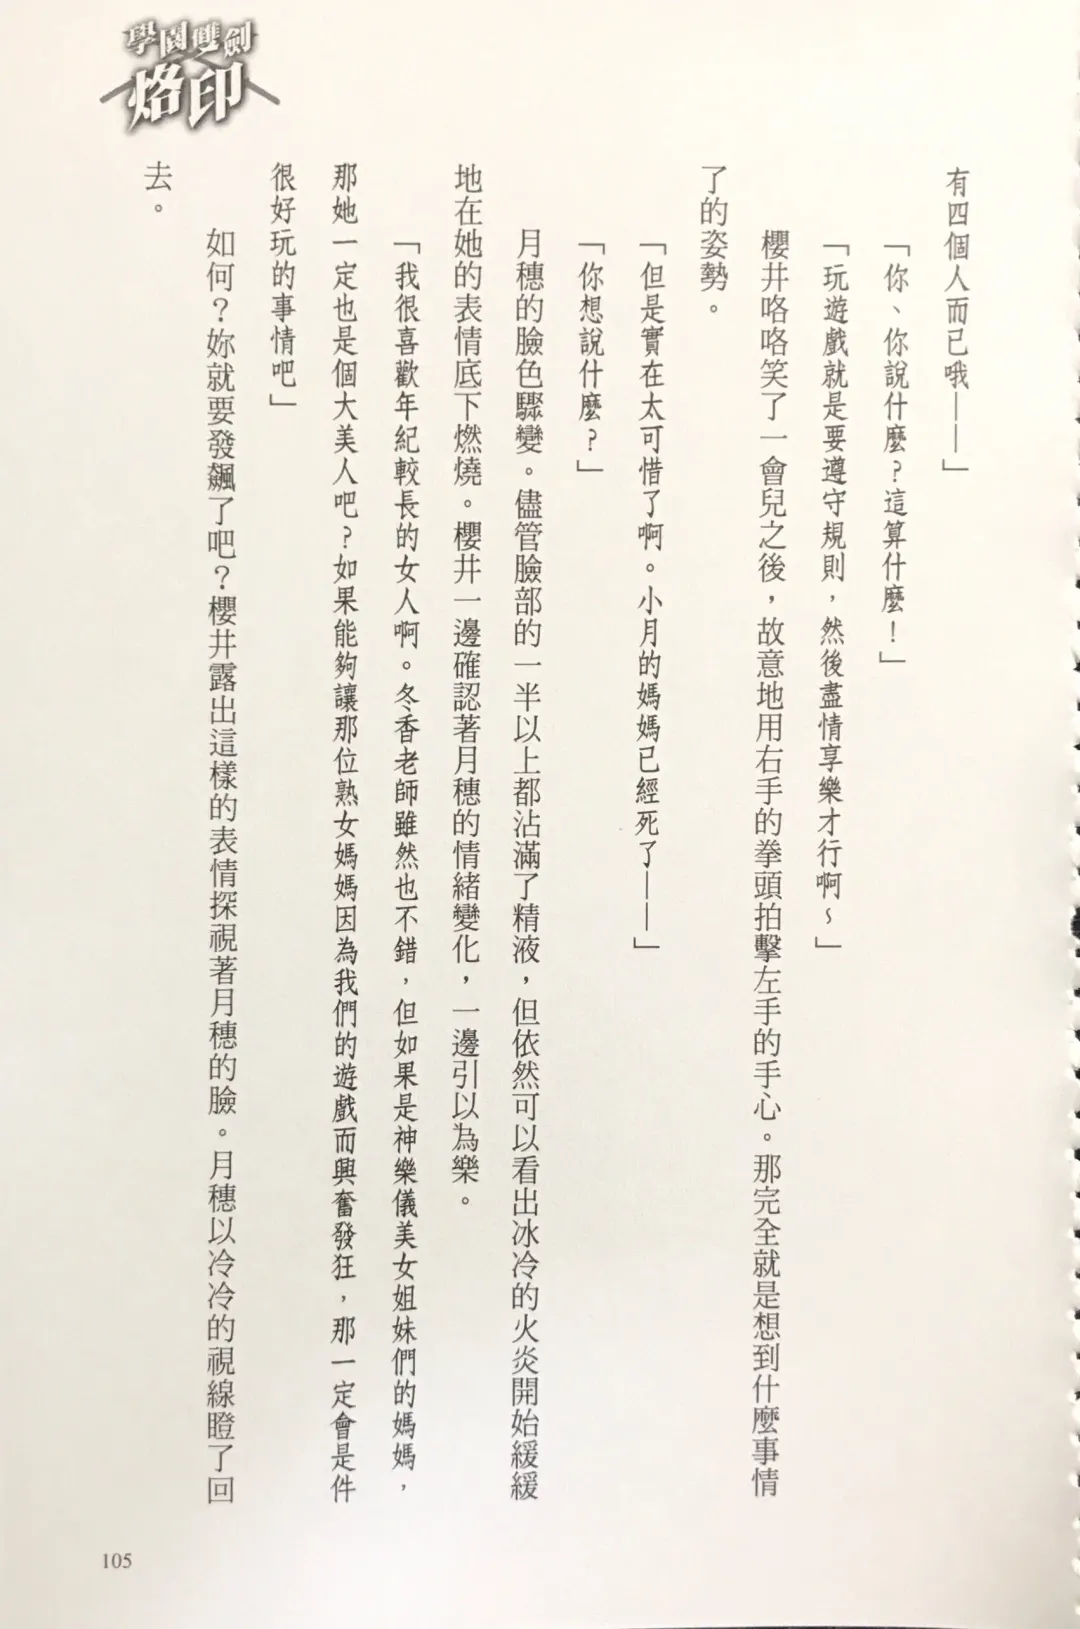 學園雙劍
烙印
有四個人而已哦——」
「你、你說什麼？這算什麼！」
「玩遊戲就是要遵守規則，然後盡情享樂才行啊～」
櫻井咯咯笑了一會兒之後，故意地用右手的拳頭拍擊左手的手心。那完全就是想到什麼事情
了的姿勢。
「但是實在太可惜了啊。小月的媽媽已經死了——」
「你想說什麼？」
月穗的臉色驟變。儘管臉部的一半以上都沾滿了精液，但依然可以看出冰冷的火炎開始緩緩
地在她的表情底下燃燒。櫻井一邊確認著月穗的情緒變化，一邊引以為樂。
「我很喜歡年紀較長的女人啊。冬香老師雖然也不錯，但如果是神樂儀美女姐妹們的媽媽，
那她一定也是個大美人吧？如果能夠讓那位熟女媽媽因為我們的遊戲而興奮發狂，那一定會是件
很好玩的事情吧」
如何？妳就要發飆了吧？櫻井露出這樣的表情探視著月穗的臉。月穗以冷冷的視線瞪了回
去。
105